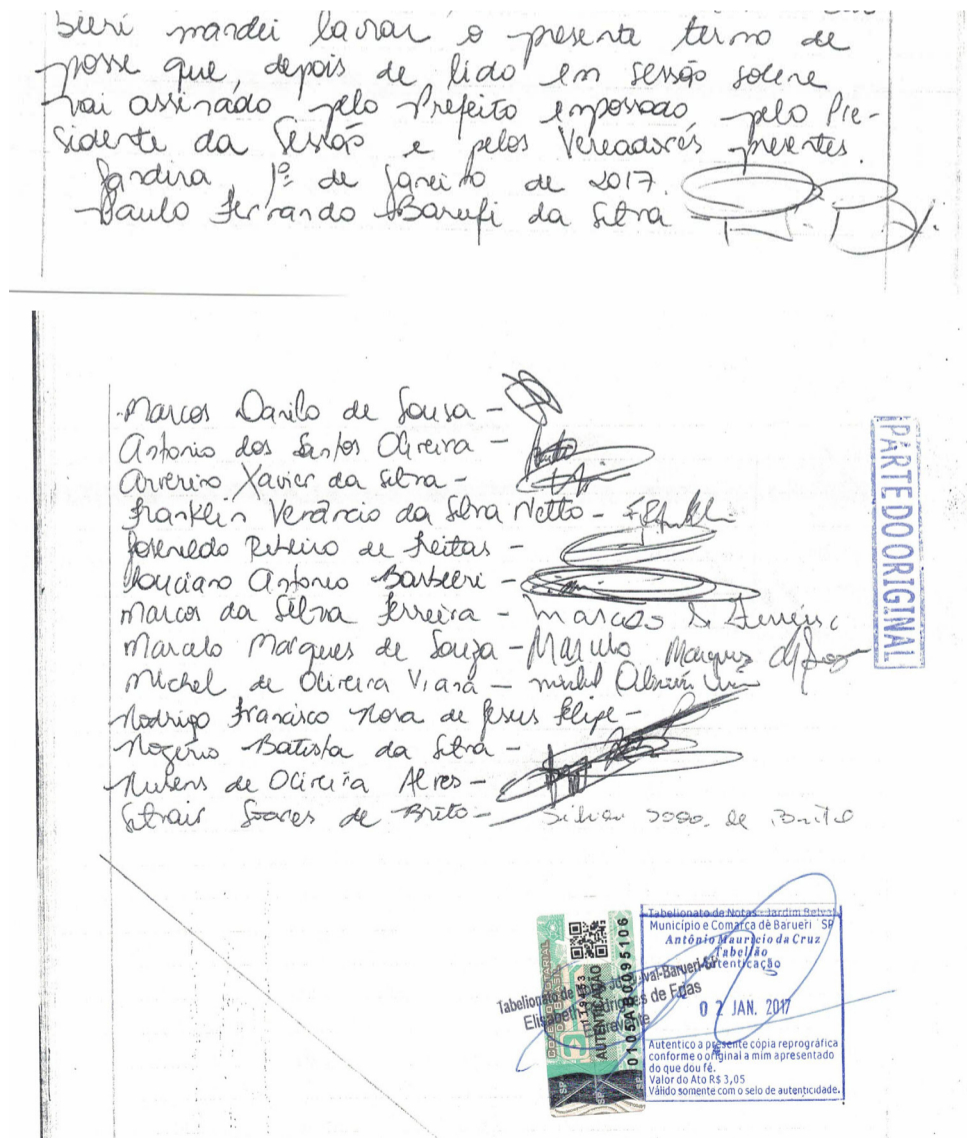 bieri mandei lavrar o presente termo de
posse que depois de lido em sessão solene
vai assinado pelo Prefeito empossado, pelo Pre-
sidente da Sessão e pelos Vereadores presentes.
Jandira, 1º de Janeiro de 2017.
Paulo Fernando Barufi da Silva
Marcos Danilo de Sousa -
Antonio dos Santos Oliveira -
Averino Xavier da Silva -
Franklin Venâncio da Silva Netto -
Josenildo Ribeiro de Freitas -
Louciano Antonio Barbieri -
Marcos da Silva Ferreira - Marcos S. Ferreira
Marcelo Marques de Souza - Marcelo Marques de Souza
Michel de Oliveira Viana - Michel Oliveira
Rodrigo Francisco Rosa de Jesus Felipe -
Rogério Batista da Silva -
Rubens de Oliveira Alves -
Silvair Soares de Brito - de Brito
PARTE DO ORIGINAL
Tabelionato de Notas - Jardim Belval
Município e Comarca de Barueri SP
Antônio Mauricio da Cruz
Tabelião
Autenticação
02 JAN. 2017
Autentico a presente cópia reprográfica
conforme o original a mim apresentado
do que dou fé.
Valor do Ato R$ 3,05
Válido somente com o selo de autenticidade.
AUTENTICAÇÃO
0105AB0095106